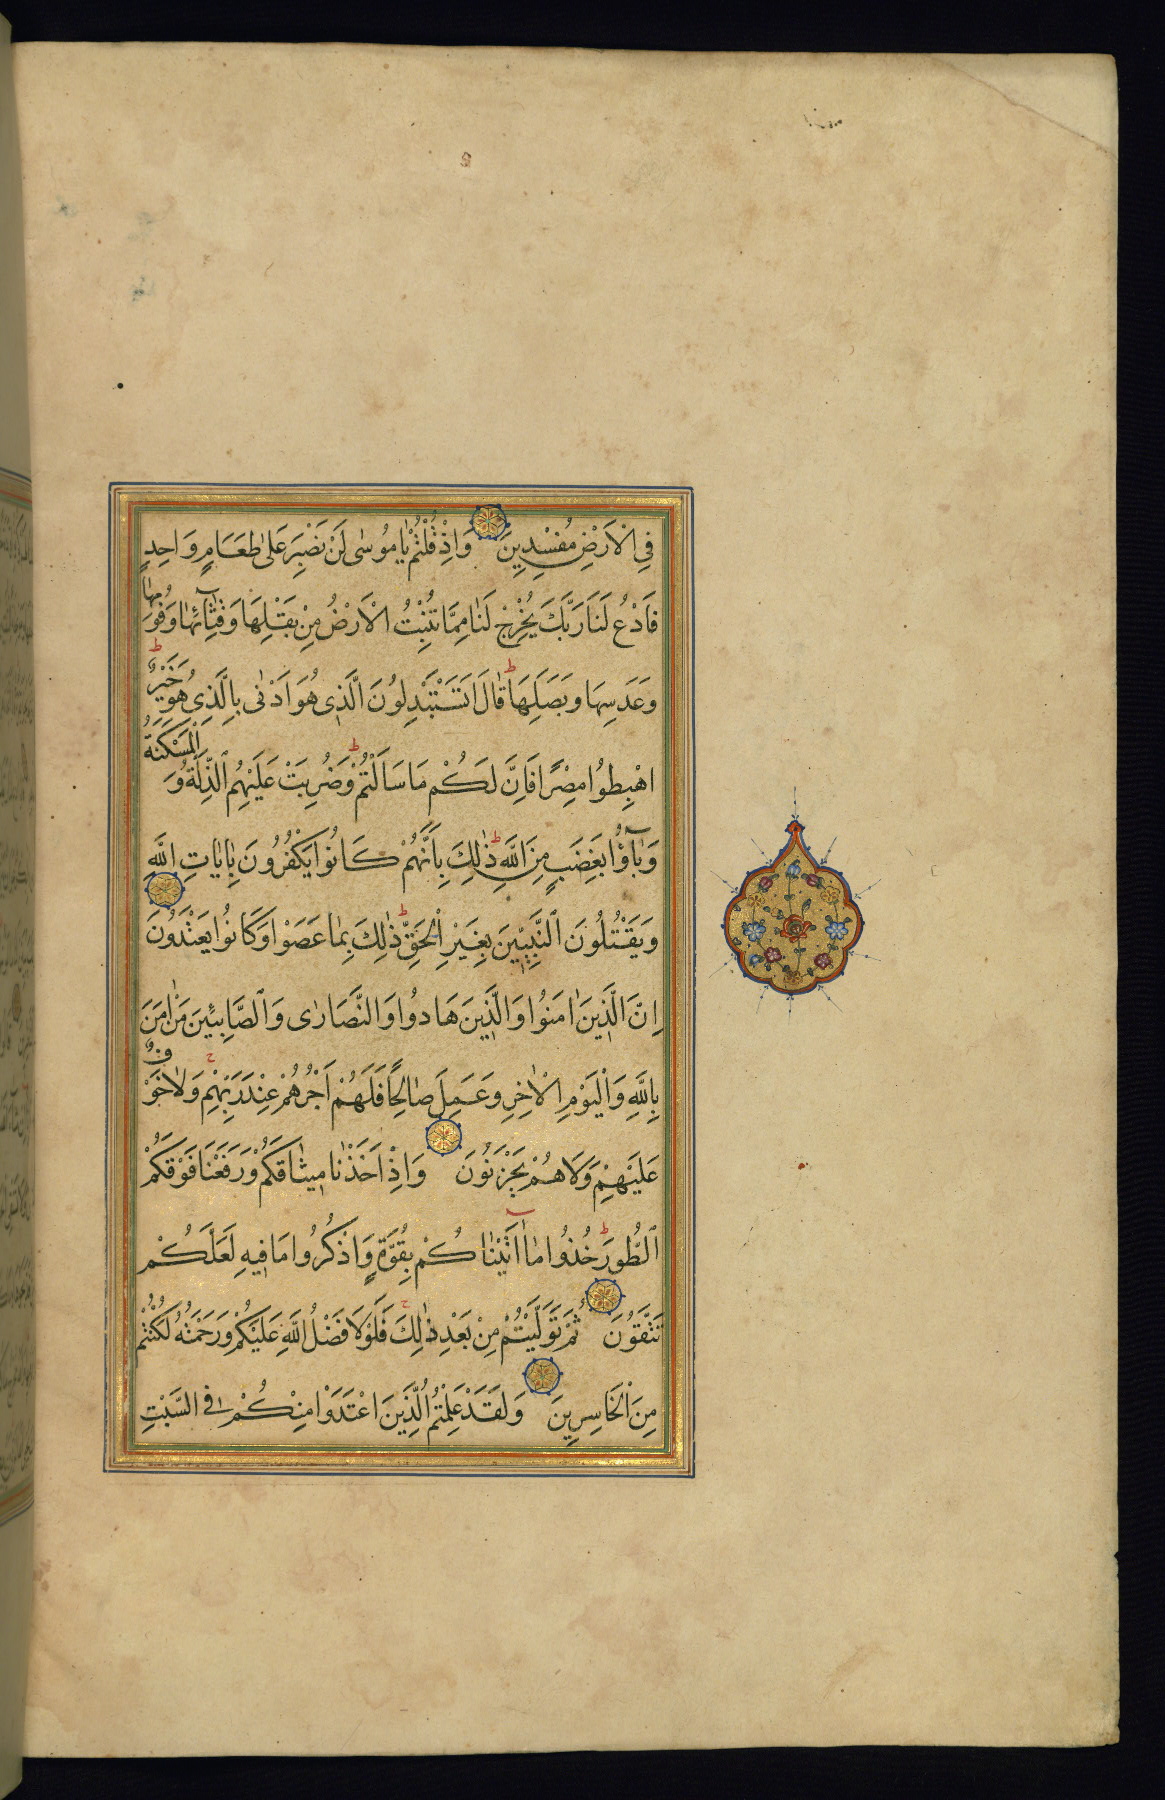 فِي الْاَرْضِ مُفْسِدِينَ وَاِذْ قُلْتُمْ يَا مُوسٰى لَنْ نَصْبِرَ عَلٰى طَعَامٍ وَاحِدٍ
فَادْعُ لَنَا رَبَّكَ يُخْرِجْ لَنَا مِمَّا تُنْبِتُ الْاَرْضُ مِنْ بَقْلِهَا وَقِثَّآئِهَا وَفُومِهَا
وَعَدَسِهَا وَبَصَلِهَا ط قَالَ اَتَسْتَبْدِلُونَ الَّذِى هُوَ اَدْنٰى بِالَّذِى هُوَ خَيْرٌ ط
اهْبِطُوا مِصْرًا فَاِنَّ لَكُمْ مَا سَاَلْتُمْ ط وَضُرِبَتْ عَلَيْهِمُ الذِّلَّةُ وَالْمَسْكَنَةُ
وَبَآؤُا بِغَضَبٍ مِنَ اللَّهِ ط ذٰلِكَ بِاَنَّهُمْ كَانُوا يَكْفُرُونَ بِاٰيَاتِ اللَّهِ
وَيَقْتُلُونَ النَّبِيّٖنَ بِغَيْرِ الْحَقِّ ط ذٰلِكَ بِمَا عَصَوْا وَكَانُوا يَعْتَدُونَ
اِنَّ الَّذِينَ اٰمَنُوا وَالَّذِينَ هَادُوا وَالنَّصَارٰى وَالصَّابِئِينَ مَنْ اٰمَنَ
بِاللَّهِ وَالْيَوْمِ الْاٰخِرِ وَعَمِلَ صَالِحًا فَلَهُمْ اَجْرُهُمْ عِنْدَ رَبِّهِمْ ح وَلَا خَوْفٌ
عَلَيْهِمْ وَلَا هُمْ يَحْزَنُونَ وَاِذْ اَخَذْنَا مِيثَاقَكُمْ وَرَفَعْنَا فَوْقَكُمُ
الطُّورَ ط خُذُوا مَآ اٰتَيْنَاكُمْ بِقُوَّةٍ وَاذْكُرُوا مَا فِيهِ لَعَلَّكُمْ
تَتَّقُونَ ثُمَّ تَوَلَّيْتُمْ مِنْ بَعْدِ ذٰلِكَ ح فَلَوْلَا فَضْلُ اللَّهِ عَلَيْكُمْ وَرَحْمَتُهُ لَكُنْتُمْ
مِنَ الْخَاسِرِينَ وَلَقَدْ عَلِمْتُمُ الَّذِينَ اعْتَدَوْا مِنْكُمْ فِى السَّبْتِ